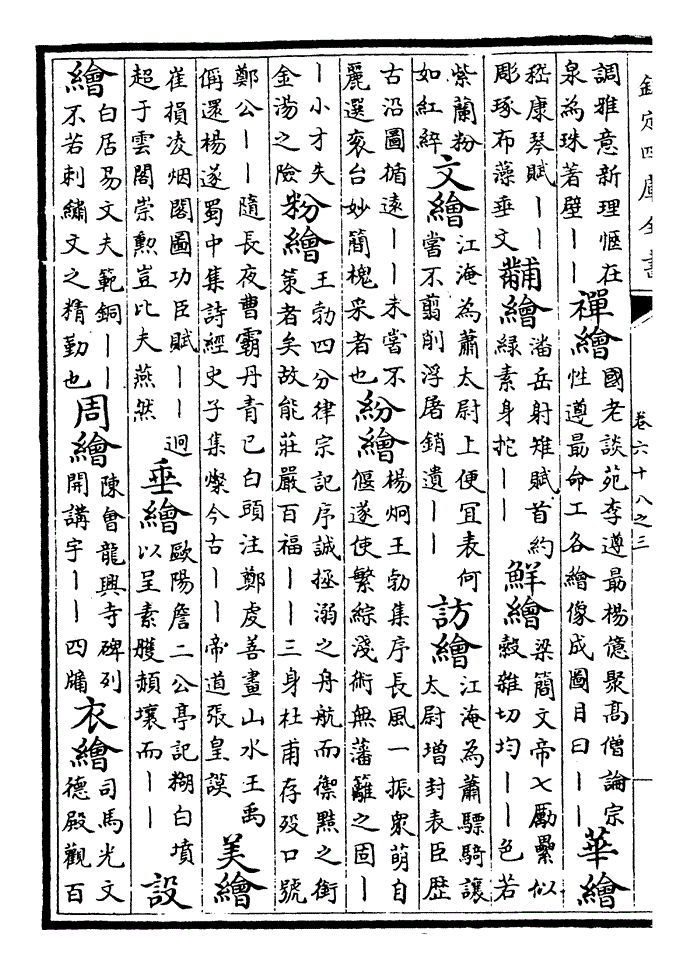 欽定四庫全書 卷六十八之三
調雅意新理愜在
泉為珠著壁——
禪繪
國老談苑李遵最楊億聚高僧論宗
性遵最命工各繪像成圖目曰——
華繪
嵇康琴賦——
彫琢布藻垂文
黼繪
潘岳射雉賦首約
綠素身拕——
鮮繪
梁簡文帝七勵纍似
縠雜切均——色若
紫蘭粉
如紅綷
文繪
江淹為蕭太尉上便宜表何
嘗不翦削浮屠銷遺——
訪繪
江淹為蕭驃騎讓
太尉增封表臣歴
古沿圖循遠——未嘗不
麗選袞台妙簡槐采者也
紛繪
楊炯王勃集序長風一振衆萌自
偃遂使繁綜淺術無藩籬之固—
—小才失
金湯之險
粉繪
王勃四分律宗記序誠拯溺之舟航而禦黠之銜
策者矣故能莊嚴百福——三身杜甫存殁口號
鄭公——隨長夜曹霸丹青已白頭注鄭虔善畫山水王禹
偁還楊遂蜀中集詩經史子集燦今古——帝道張皇謨
美繪
崔損凌烟閣圖功臣賦——迥
超于雲閣崇勲豈比夫燕然
垂繪
歐陽詹二公亭記糊白墳
以呈素雘頳壤而——
設繪
白居易文夫範銅——
不若刺繡文之精勤也
周繪
陳會龍興寺碑列
開講宇——四牖
衣繪
司馬光文
德殿觀百